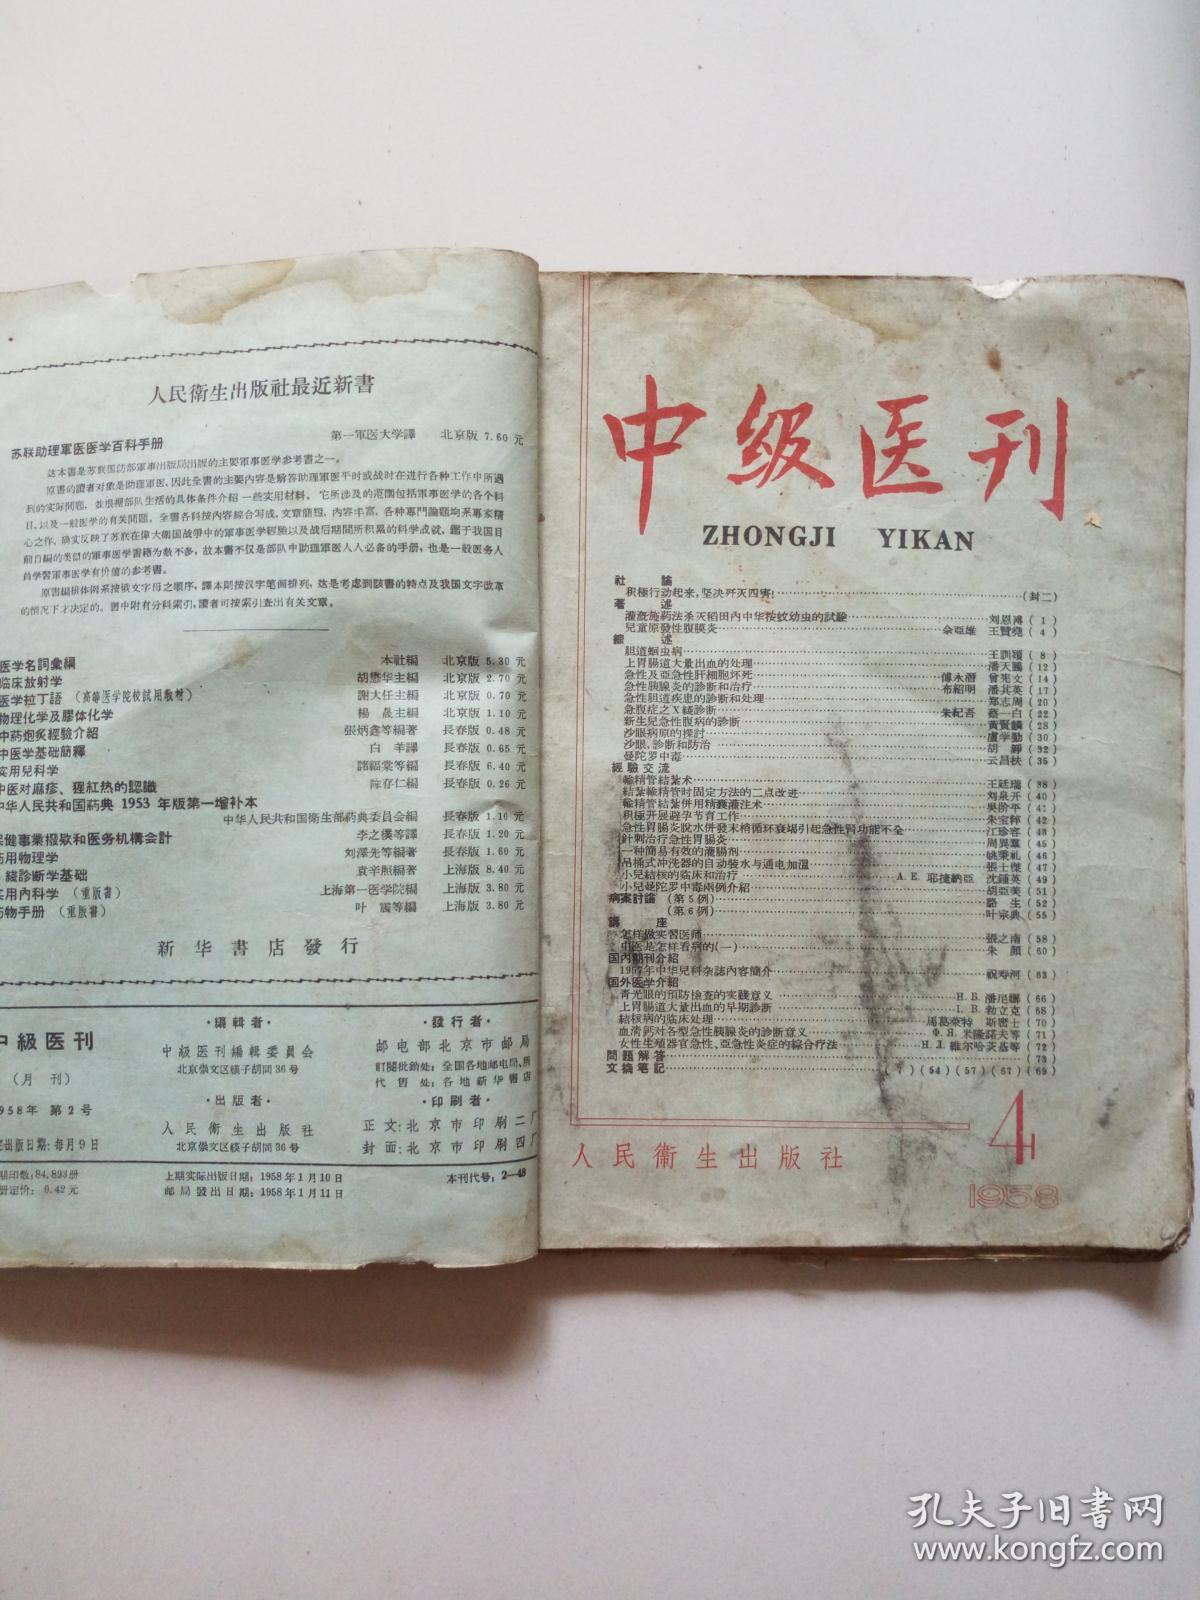 人民衛生出版社最近新書
苏联助理軍医医学百科手册 第一軍医大学譯 北京版 7.60 元
这本書是苏联国防部軍事出版局出版的主要軍事医学参考書之一。
原書的讀者对象是助理軍医、因此全書的主要内容是解答助理軍医平时或战时在进行各种工作中所遇
到的实际問題, 並根据部队生活的具体条件介紹一些实用材料。它所涉及的范围包括軍事医学的各个科
目、以及一般医学的有关問題。全書各科按内容綜合写成, 文章簡短, 内容丰富, 各种專門論題均系專家精
心之作, 确实反映了苏联在偉大衛国战爭中的軍事医学經驗以及战后期間所积累的科学成就, 鑑于我国目
前自編的类似的軍事医学書籍为数不多, 故本書不仅是部队中助理軍医人人必备的手册, 也是一般医务人
員学習軍事医学有价值的参考書。
原書編排体例系按俄文字母之順序, 譯本則按汉字笔画排列, 这是考慮到該書的特点及我国文字改革
的情况下才决定的。書中附有分科索引, 讀者可按索引查出有关文章。
医学名詞彙編 本社編 北京版 5.30 元
临床放射学 胡懋华主編 北京版 2.70 元
医学拉丁語 (高等医学院校試用教材) 謝大任主編 北京版 0.70 元
物理化学及膠体化学 楊 晟主編 北京版 1.10 元
中葯炮炙經驗介紹 張炳鑫等編著 長春版 0.48 元
中医学基础簡釋 白 羊譯 長春版 0.65 元
实用兒科学 諸福棠等編 長春版 6.40 元
中医对麻疹、猩紅热的認識 陈存仁編 長春版 0.26 元
中华人民共和国葯典 1953 年版第一增补本
中华人民共和国衛生部葯典委員会編 長春版 1.10 元
保健事業报欵和医务机構会計 李之樸等譯 長春版 1.20 元
葯用物理学 刘澤先等編著 長春版 1.60 元
綫診断学基础 袁辛照編著 上海版 8.40 元
实用内科学 (重版書) 上海第一医学院編 上海版 3.80 元
葯物手册 (重版書) 叶 震等編 上海版 3.80 元
新华書店發行
中級医刊
(月 刊)
1958年 第2号
定出版日期: 每月9日
期印数: 84,893册
册定价: 0.42 元
·編輯者·
中級医刊編輯委員会
北京崇文区綫子胡同 36 号
·出版者·
人民衛生出版社
北京崇文区綫子胡同 36 号
·發行者·
邮电部北京市邮局
訂閱批銷处: 全国各地邮电局,所
代售处: 各地新华書店
·印刷者·
正文: 北京市印刷二厂
封面: 北京市印刷四厂
上期实际出版日期: 1958年1月10日
邮局發出日期: 1958年1月11日
本刊代号: 2—48
中級医刊
ZHONGJI YIKAN
社 論
积極行动起来, 坚决歼灭四害! (封二)
著 述
灌溉施葯法杀灭稻田内中华按蚊幼虫的試驗 刘恩溥 (1)
兒童原發性腹膜炎 佘亞雄 王賢堯 (4)
綜 述
胆道蛔虫病 王訓頴 (8)
上胃腸道大量出血的处理 潘天鵬 (12)
急性及亞急性肝細胞坏死 傅永潛 曾宪文 (14)
急性胰腺炎的診断和治疗 布紹明 潘其英 (17)
急性胆道疾患的診断和处理 鄭志周 (20)
急腹症之X綫診断 朱紀吾 蔡一白 (22)
新生兒急性腹病的診断 黄賢麟 (28)
沙眼病原的探討 盧学勤 (30)
沙眼,診断和防治 胡 錚 (32)
曼陀罗中毒 云昌扶 (35)
經驗交流
輸精管結紮术 王廷瑞 (38)
結紮輸精管时固定方法的二点改进 刘泉开 (40)
輸精管結紮併用精囊灌注术 吳阶平
积極开展避孕节育工作 朱宝粹 (42)
急性胃腸炎脫水併發末梢循环衰竭引起急性腎功能不全 江珍容 (43)
針刺治疗急性胃腸炎 周異羣 (45)
一种簡易有效的灌腸剂 姚秉礼 (46)
吊桶式冲洗器的自动裝水与通电加温 張士傑 (47)
小兒結核的临床和治疗 A.E. 耶捷納亞 沈鍾英 (49)
小兒曼陀罗中毒兩例介紹 胡亞美 (51)
病案討論 (第5例) 駱 生 (52)
(第6例) 叶宗典 (55)
講 座
怎样做实習医师 張之南 (58)
中医是怎样看病的(一) 朱 顏 (60)
国内期刊介紹
1957年中华兒科杂誌内容簡介 祝寿河 (63)
国外医学介紹
青光眼的預防檢查的实踐意义 Н.Б. 潘尼娜 (66)
上胃腸道大量出血的早期診断 I. B. 勃立克 (68)
結核病的临床处理 馬葛萊特 斯密士 (70)
血清鈣对各型急性胰腺炎的診断意义 Ф.Я. 米隆諾夫等 (71)
女性生殖器官急性、亞急性炎症的綜合疗法 Н.Л. 維尔哈茨基等 (72)
問題解答 (73)
文摘笔記 (7)(54)(57)(67)(69)
4
人民衛生出版社
1958
孔夫子旧書网
www.kongfz.com